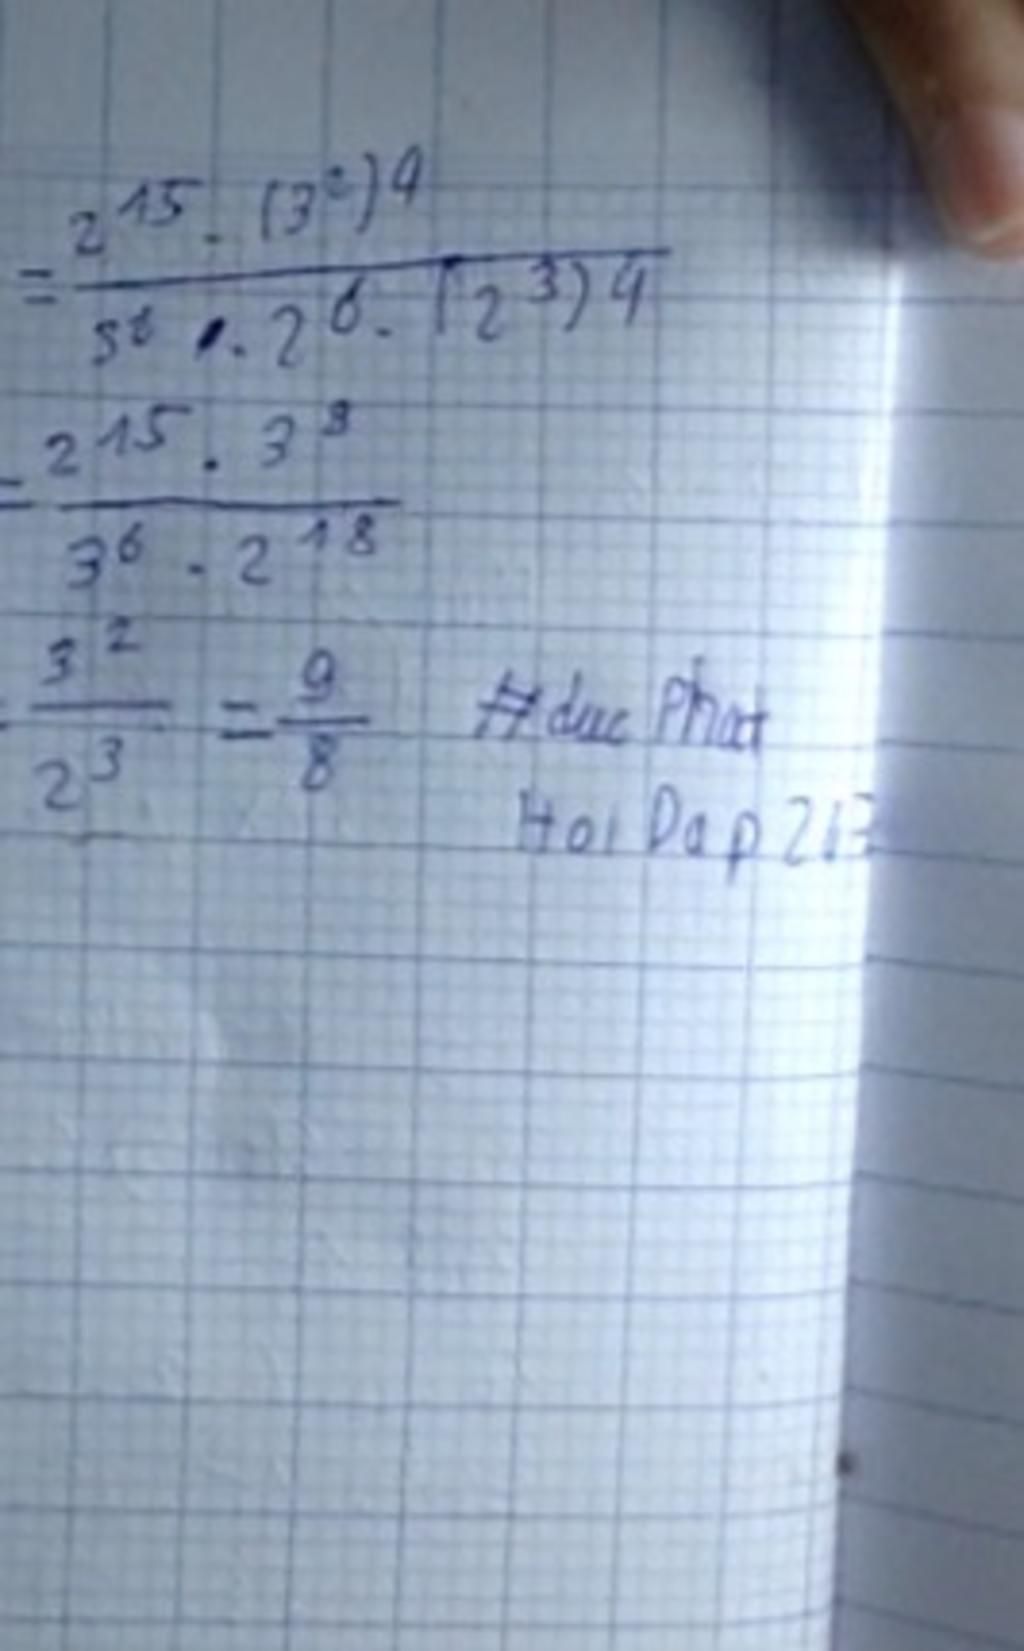 = 2^15 . (3^2)^4 / 3^6 . 2^6 . (2^3)^4
= 2^15 . 3^8 / 3^6 . 2^18
= 3^2 / 2^3 = 9 / 8 #duc Phat
Hoi Dap 247